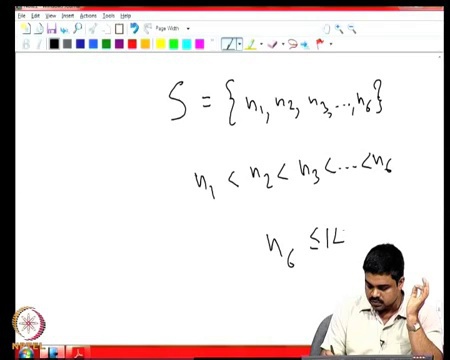 File Edit View Insert Actions Tools Help
Page Width
S = { n₁, n₂, n₃, ..., n₆ }
n₁ < n₂ < n₃ < ... < n₆
n₆ ≤ 1